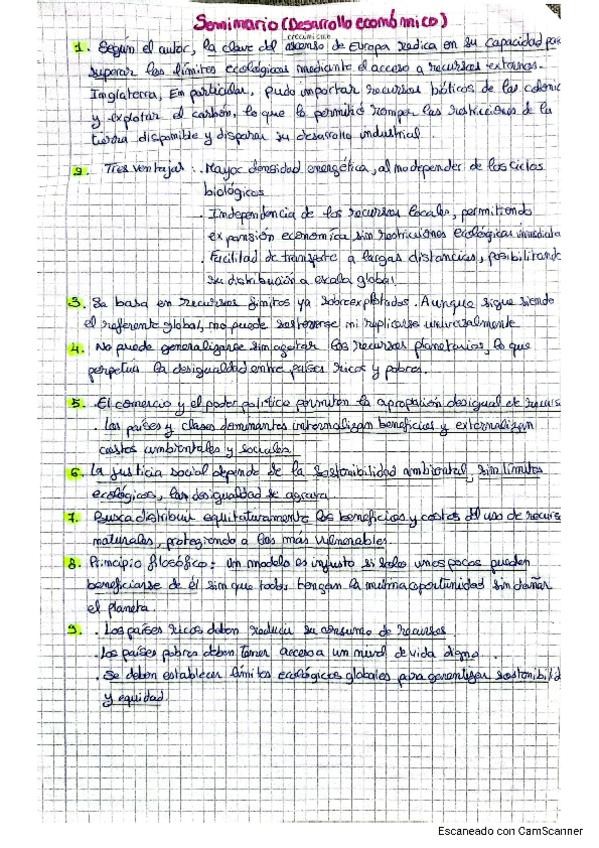 Seminario (Desarrollo económico)
crecimiento
1. Según el autor, la clave del ascenso de Europa radica en su capacidad par
superar los límites ecológicos mediante el acceso a recursos externos.
Inglaterra, En particular, pudo importar recursos bióticos de las coloni
y explotar el carbón, lo que lo permitió romper las restricciones de la
tierra disponible y disparar su desarrollo industrial.
2. Tres ventajas: . Mayor densidad energética, al no depender de los ciclos
biológicos
. Independencia de los recursos locales, permitiendo
expansión económica sin restricciones ecológicas inmediata
. Facilidad de transporte a largas distancias, posibilitando
su distribución a escala global.
3. Se basa en recursos finitos ya sobreexplotados. Aunque sigue siendo
el referente global, no puede sostenerse ni replicarse universalmente
4. No puede generalizarse sin agotar los recursos planetarios, lo que
perpetúa la desigualdad entre países ricos y pobres.
5. El comercio y el poder político permiten la apropiación desigual de recurs
. Los países y clases dominantes internalizan beneficios y externalizan
costos ambientales y sociales.
6. La justicia social depende de la sostenibilidad ambiental, sin límites
ecológicos, las desigualdad se agrava.
7. Busca distribuir equitativamente los beneficios y costos del uso de recurs
naturales, protegiendo a los más vulnerables.
8. Principio filosófico: un modelo es injusto si solo unos pocos pueden
beneficiarse de él sin que todos tengan la misma oportunidad sin dañar
el planeta.
9. . Los países ricos deben reducir su consumo de recursos
. Los países pobres deben tener acceso a un nivel de vida digno
. Se deben establecer límites ecológicos globales para garantizar sostenibilid
y equidad.
Escaneado con CamScanner